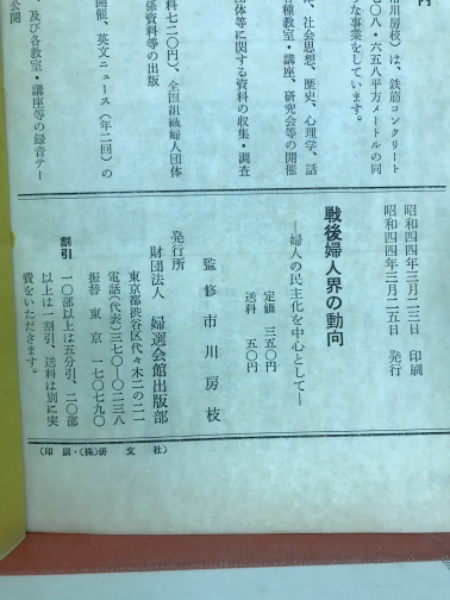 内
市川房枝）は、鉄筋コンクリート
〇〇八・六五八平方メートルの同
な事業をしています。
、社会思想、歴史、心理学、話
各種教室・講座、研究会等の開催
団体等に関する資料の収集・調査
料七二〇円）、全国組織婦人団体
係資料等の出版
開催、英文ニュース（年二回）の
、及び各教室・講座等の録音テー
公開
昭和四四年三月二三日　印刷
昭和四四年三月二五日　発行
戦後婦人界の動向
―婦人の民主化を中心として―
定価　三五〇円
送料　五〇円
監修　市川房枝
発行所
財団法人　婦選会館出版部
東京都渋谷区代々木二の二一
電話（代表）三七〇―〇二三八
振替　東京　一七〇七九〇
割引
一〇部以上は五分引、二〇部
以上は一割引、送料は別に実
費をいただきます。
（印刷・（株）研文社）